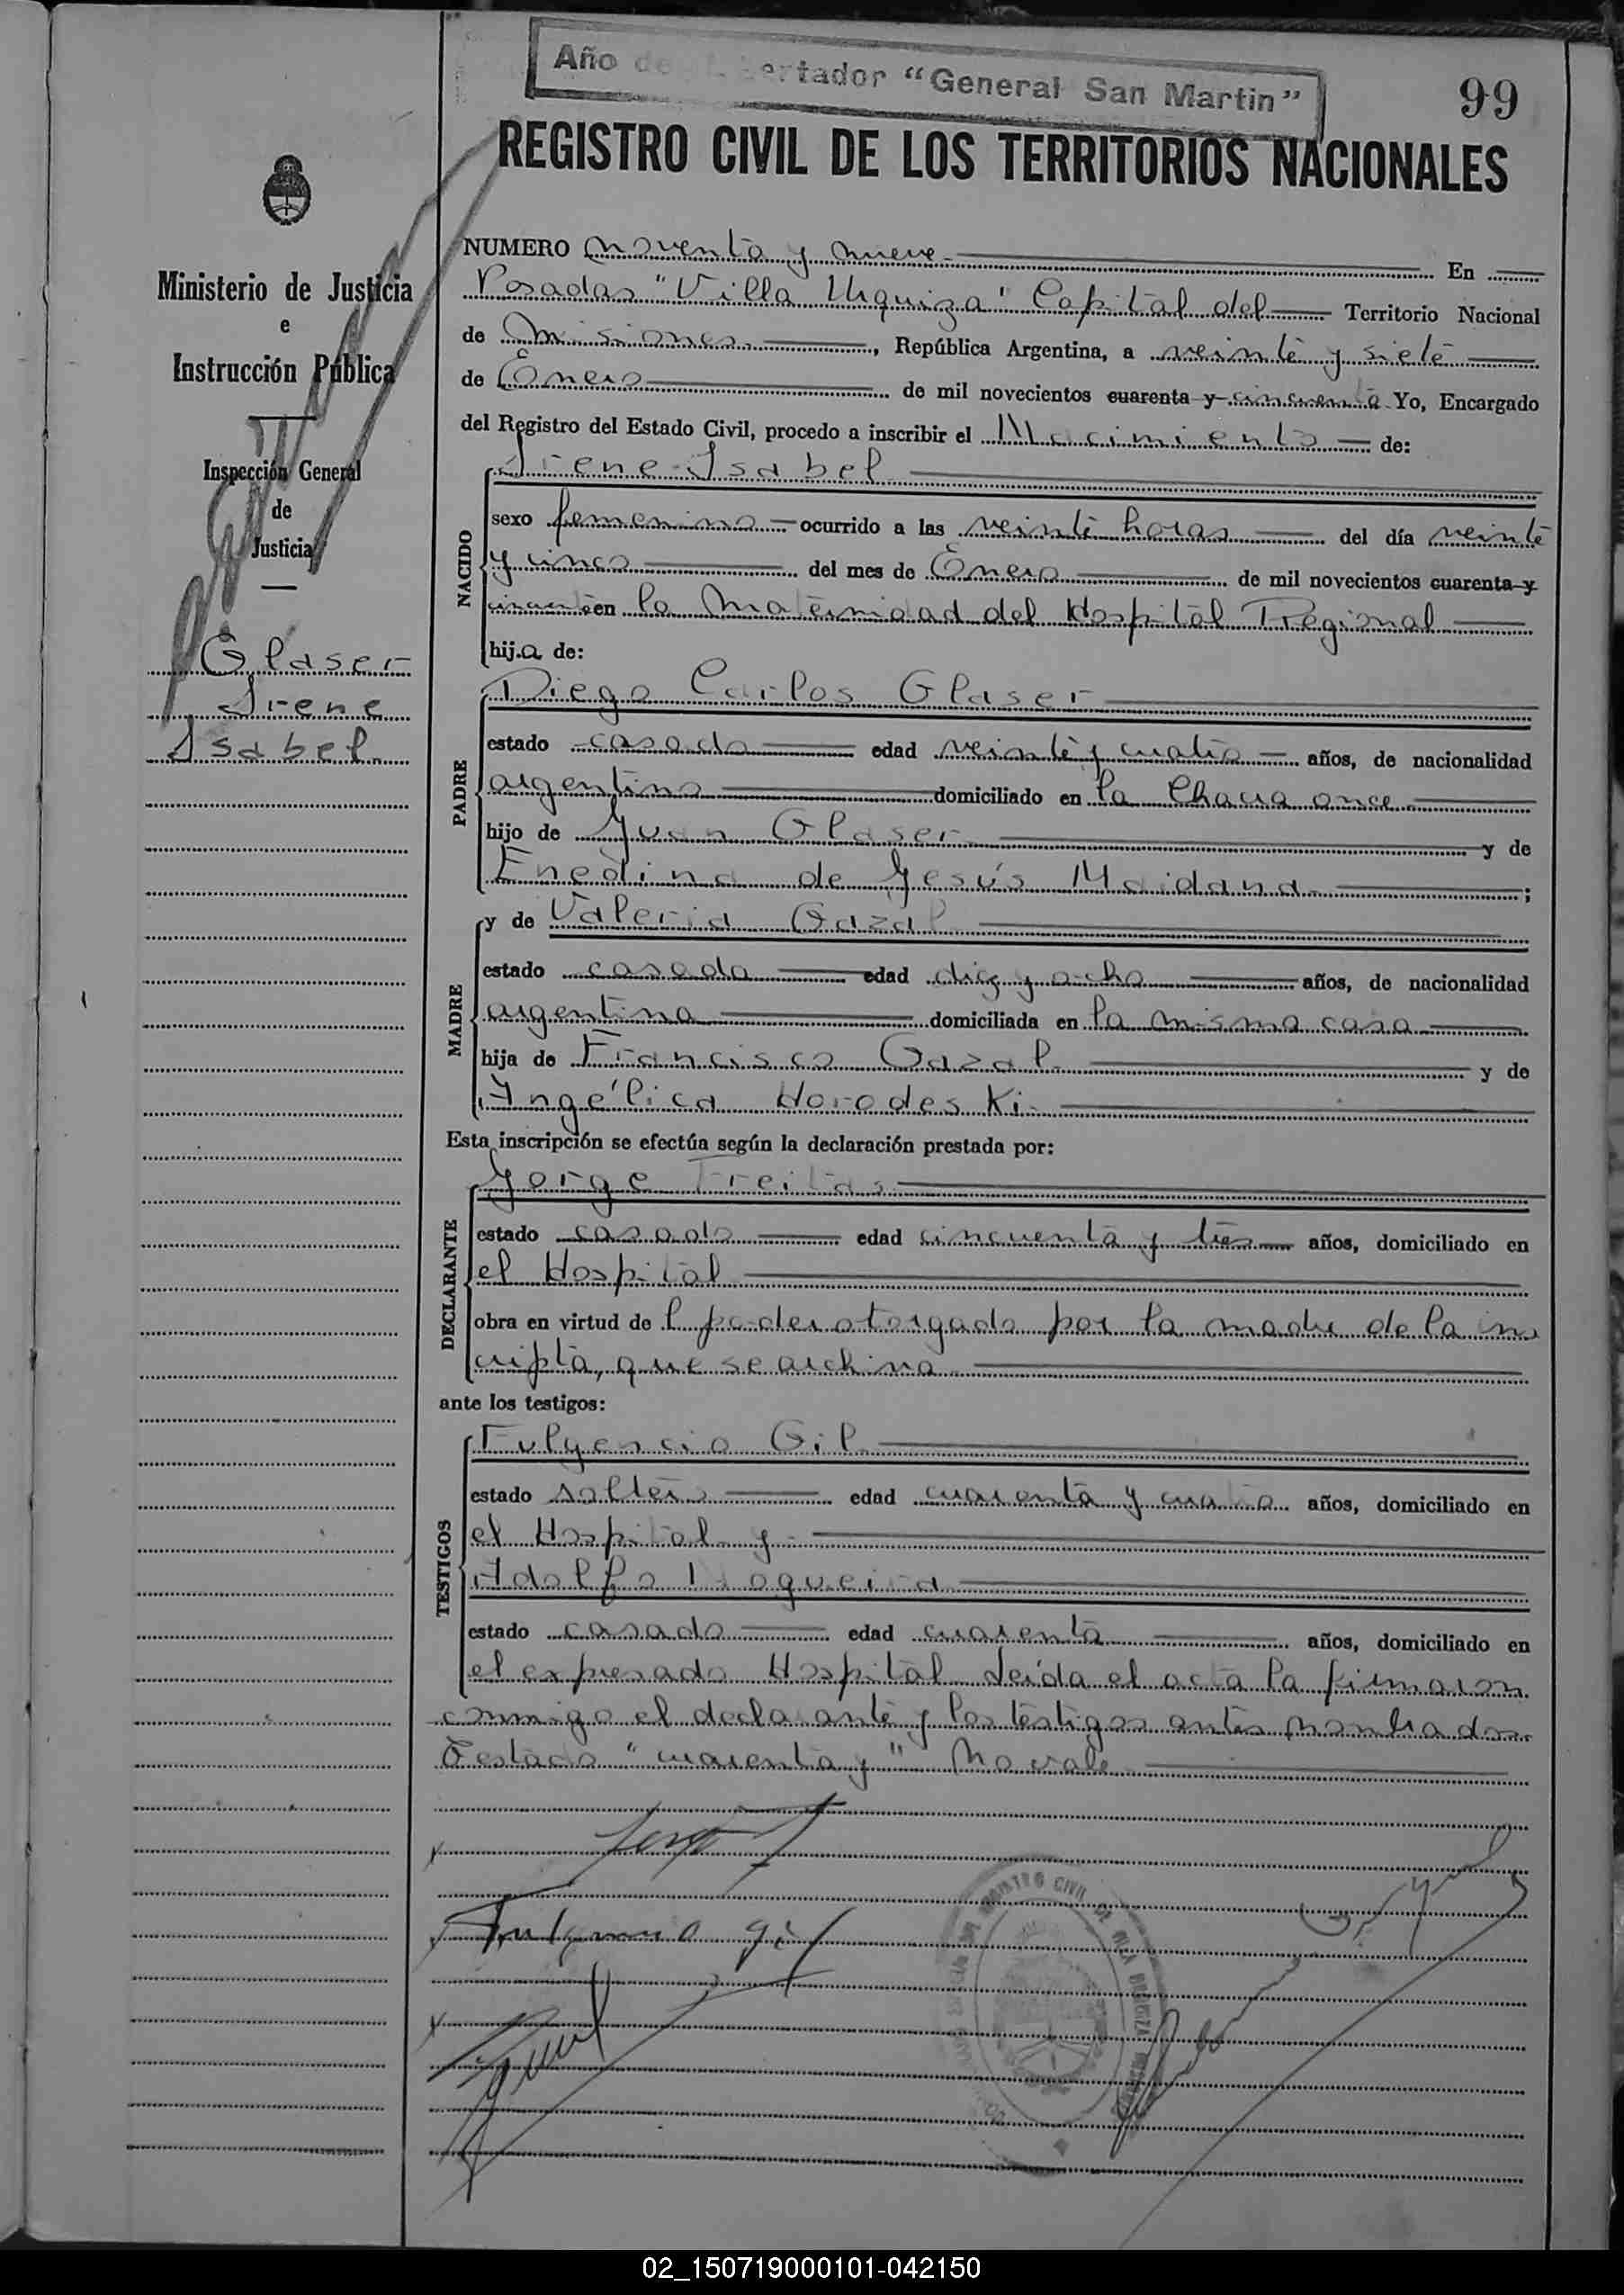 Año de Libertador "General San Martin"
99
REGISTRO CIVIL DE LOS TERRITORIOS NACIONALES
Ministerio de Justicia
e
Instrucción Pública
Inspección General
de
Justicia
Glaser
Irene
Isabel
NUMERO noventa y nueve En
Posadas "Villa Urquiza" Capital del Territorio Nacional
de Misiones, República Argentina, a veinte y siete
de Enero de mil novecientos cuarenta y cincuenta Yo, Encargado
del Registro del Estado Civil, procedo a inscribir el Nacimiento de:
Irene Isabel
NACIDO
sexo femenino ocurrido a las veinte horas del día veinte
y cinco del mes de Enero de mil novecientos cuarenta y
cincuenta en la Maternidad del Hospital Regional
hij.a de:
Diego Carlos Glaser
PADRE
estado casado edad veinte y cuatro años, de nacionalidad
argentino domiciliado en la Chacra once
hijo de Juan Glaser y de
Enedina de Jesús Maidana ;
y de Valeria Gazal
MADRE
estado casada edad diez y ocho años, de nacionalidad
argentina domiciliada en la misma casa
hija de Francisco Gazal y de
Angélica Horodeski
Esta inscripción se efectúa según la declaración prestada por:
Jorge Freitas
DECLARANTE
estado casado edad cincuenta y tres años, domiciliado en
el Hospital
obra en virtud de l poder otorgado por la madre de la ins
cripta, que se archiva
ante los testigos:
Fulgencio Gil
TESTIGOS
estado soltero edad cuarenta y cuatro años, domiciliado en
el Hospital y
Adolfo Nogueira
estado casado edad cuarenta años, domiciliado en
el expresado Hospital Leída el acta la firmaron
conmigo el declarante y los testigos antes nombrados.
Testado "cuarenta y" No vale
Fulgencio gil
REGISTRO CIVIL DE VILLA URQUIZA
02_150719000101-042150